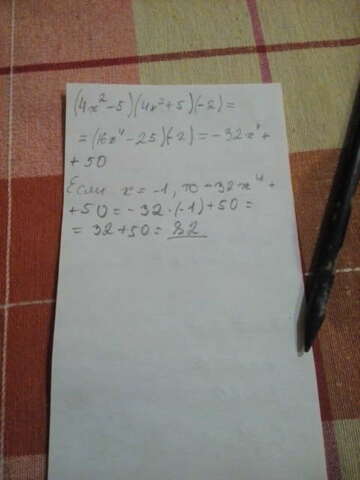 (4x²-5)(4x²+5)(-2)=
=(16x⁴-25)(-2)=-32x⁴+
+50
Если x=-1, то -32x⁴+
+50=-32·(-1)+50=
=32+50=82